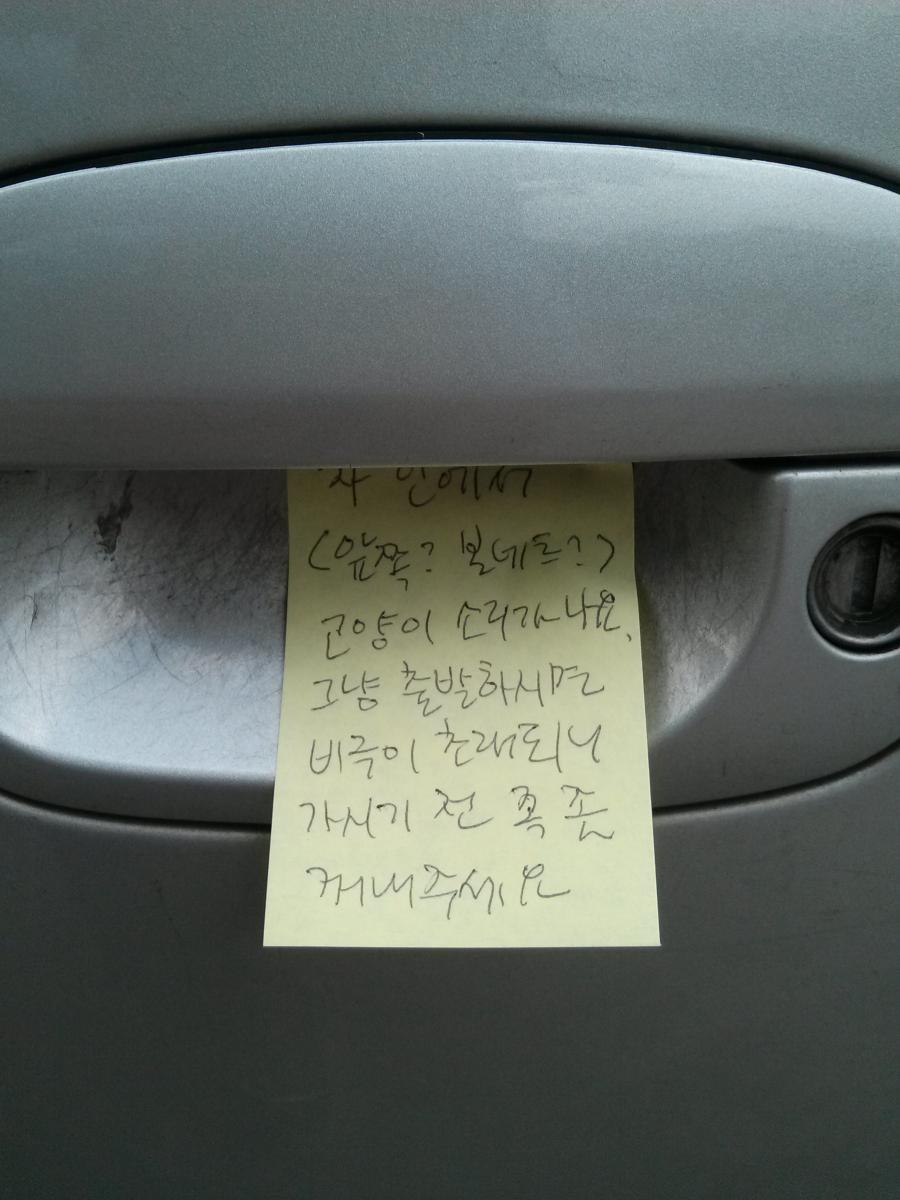 차 안에서
(앞쪽? 본네트?)
고양이 소리가 나요.
그냥 출발하시면
비극이 초래되니
가시기 전 꼭 좀
꺼내주세요